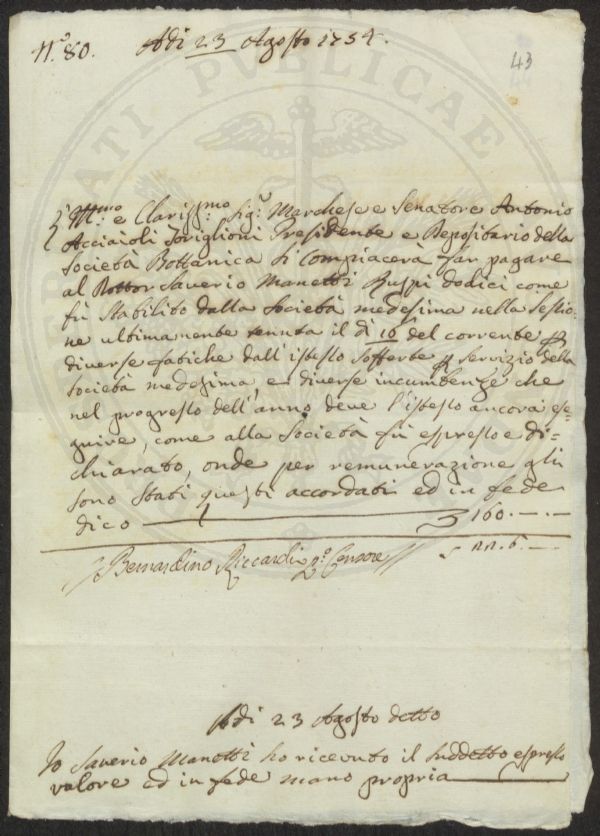 N.º 80.
Adi 23 Agosto 1754.
43
Ill.mo e Clariss.mo Sig.r Marchese e Senatore Antonio
Acciaioli Toriglioni Presidente e Depositario della
Società Bottanica Si Compiacerà far pagare
al Dottor Saverio Manetti Ruspi dodici come
fù Stabilito dalla Società medesima nella Sessio=
ne ultimamente tenuta il dì 10 del corrente p
diverse fatiche dall'istesso Sofferte p servizio della
Società medesima, e diverse incumbenze che
nel progresso dell'anno deve l'istesso ancora ese=
guire, come alla Società fù espresso e di=
chiarato, onde per remunerazione gli
sono Stati questi accordati ed in fede
dico 160.
Bernardino Riccardi 2.º Censore
Adi 23 Agosto detto
Io Saverio Manetti ho ricevuto il suddetto espresso
valore ed in fede mano propria